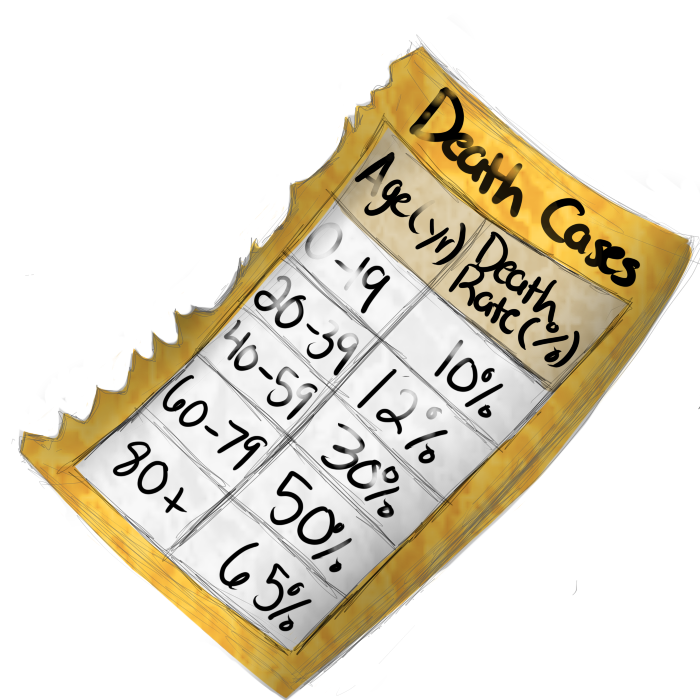 Death Cases
Age (yr) Death Rate (%)
0-19 10%
20-39 12%
40-59 30%
60-79 50%
80+ 65%